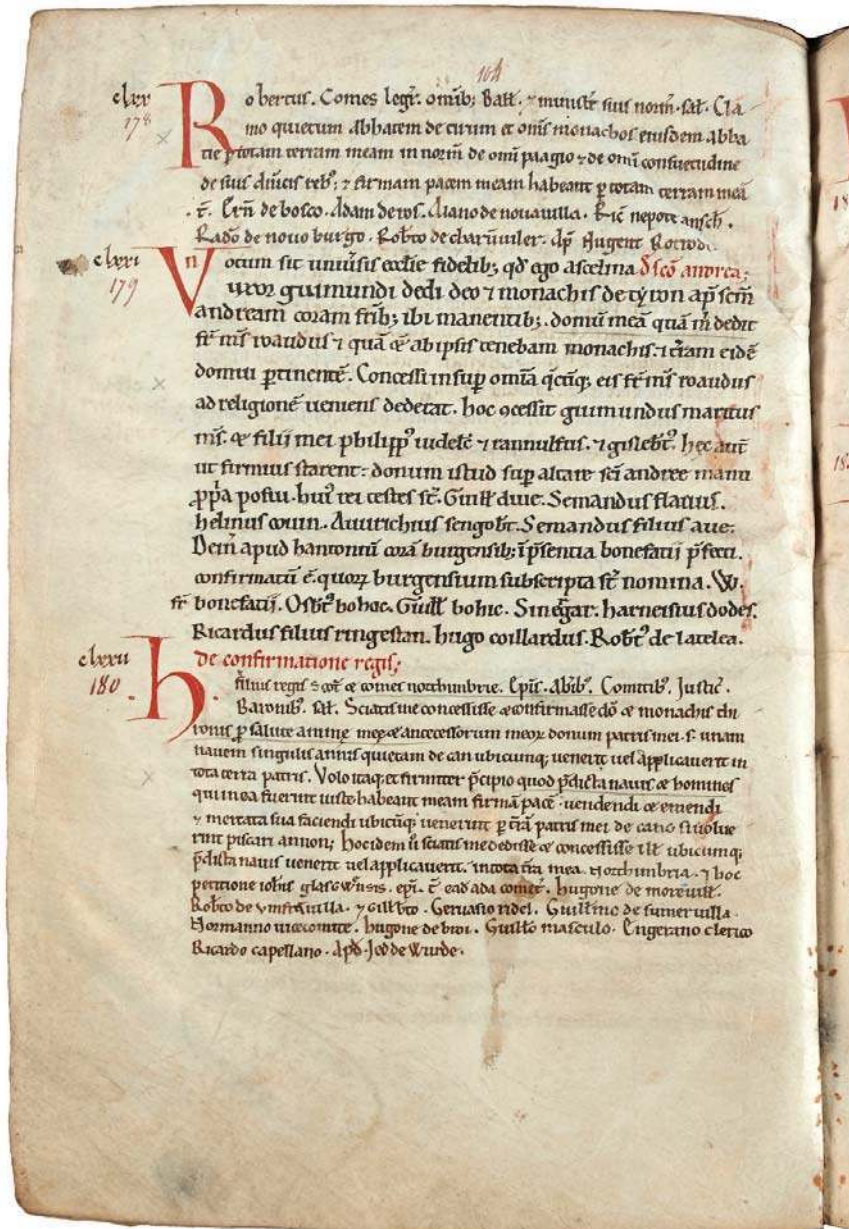 104
clxx Robertus. Comes legr̄. omib; Bałł. ⁊ ministr̄ suis norm̄. sał. Cla
178 mo quietum abbatem de tirun et om̄s monachos eiusdem abba
tie ꝑ totam terram meam in norm̄ de om̄i paagio ⁊ de om̄i consuetudine
de suis dn̄icis rebꝰ; ⁊ firmam pacem meam habeant ꝑ totam terram meā
. T̄. Ern̄ de bosco. Adam de ros. Alano de nouauilla. Ric̄ nepote ansch̄.
Rad̄o de nouo burgo. Rob̄to de charn̄uiler. Ap̄ Nugent Rotrod̄.
clxxi Votum sit uniūsis ecclie fidelib; qd̄ ego ascelina D̄ sc̄o andrea;
179 uxor guimundi dedi deo ⁊ monachis de tyron ap̄ sc̄m
andream coram fr̄ib; ibi manentib;. domū meā quā m̄ dedit
fr̄ m̄s roaudus ⁊ quā & ab ipsis tenebam monachis. ⁊ t̄ram eidē
domui ꝑtinentē. Concessi insup̄ omīa q̄cūq; eis fr̄ m̄s roaudus
ad religionē ueniens dederat. hoc ꝯcessit guimundus maritus
m̄s. & filii mei philippꝰ uidelic̄ ⁊ rannulfus. ⁊ gislebt̄ꝰ. hec aūt
ut firmius starent: donum istud sup̄ altare sc̄i andree manu
ꝓp̄a posui. huiꝰ rei testes st̄. Guiłł duie. Semandus flauus.
helinus couin. Auurichius sengob̄t. Semandus filius aue.
Dein̄ apud hantonnū corā burgensib; ī p̄sentia bonefatii p̄fecti.
confirmatū ē. quoꝝ burgensium subscripta st̄ nomina. W.
fr̄ bonefatii. Osb̄tꝰ bohoc. Guiłł bohic. Sinegar. harneisius dodes.
Ricardus filius ringestan. hugo coillardus. Rob̄tꝰ de latelea.
clxxii de confirmatione regis;
180 h. filius regis scot̄ & comes northumbrie. Ep̄is. Ab̄ibꝰ. Comitibꝰ. Justic̄.
Baronibꝰ. sał. Sciatis me concessisse & confirmasse dō & monachis thi
ronis ꝑ salute anime mee & antecessorum meoꝝ donum patris mei. s. unam
nauem singulis annis quietam de can ubicunq; uenerit uel applicauerit in
tota terra patris. Volo itaq; et firmiter p̄cipio quod p̄dicta nauis & homines
qui in ea fuerint iuste habeant meam firmā pacē. uendendi & emendi
⁊ mercata sua faciendi ubicūq; uenerint ꝑ t̄rā patris mei de cano si uolue
rint piscari annon; hoc idem ū sciatis me dedisse & concessisse iłł ubicumq;
p̄dicta nauis uenerit uel applicauerit. in tota t̄ra mea. Northumbria. ⁊ hoc
petitione ioh̄is glasgWnsis. ep̄i. T̄ ead̄ ada comet̄. hugone de moreuiłł.
Rob̄to de vmfrāuilla. ⁊ Gill̄bto. Geruasio ridel. Guiłłmo de sumeruilla.
Normanno uicecomite. hugone de broi. Guiłło masculo. Engerano clerico
Ricardo capellano. Apd̄. Jedde Wurde.